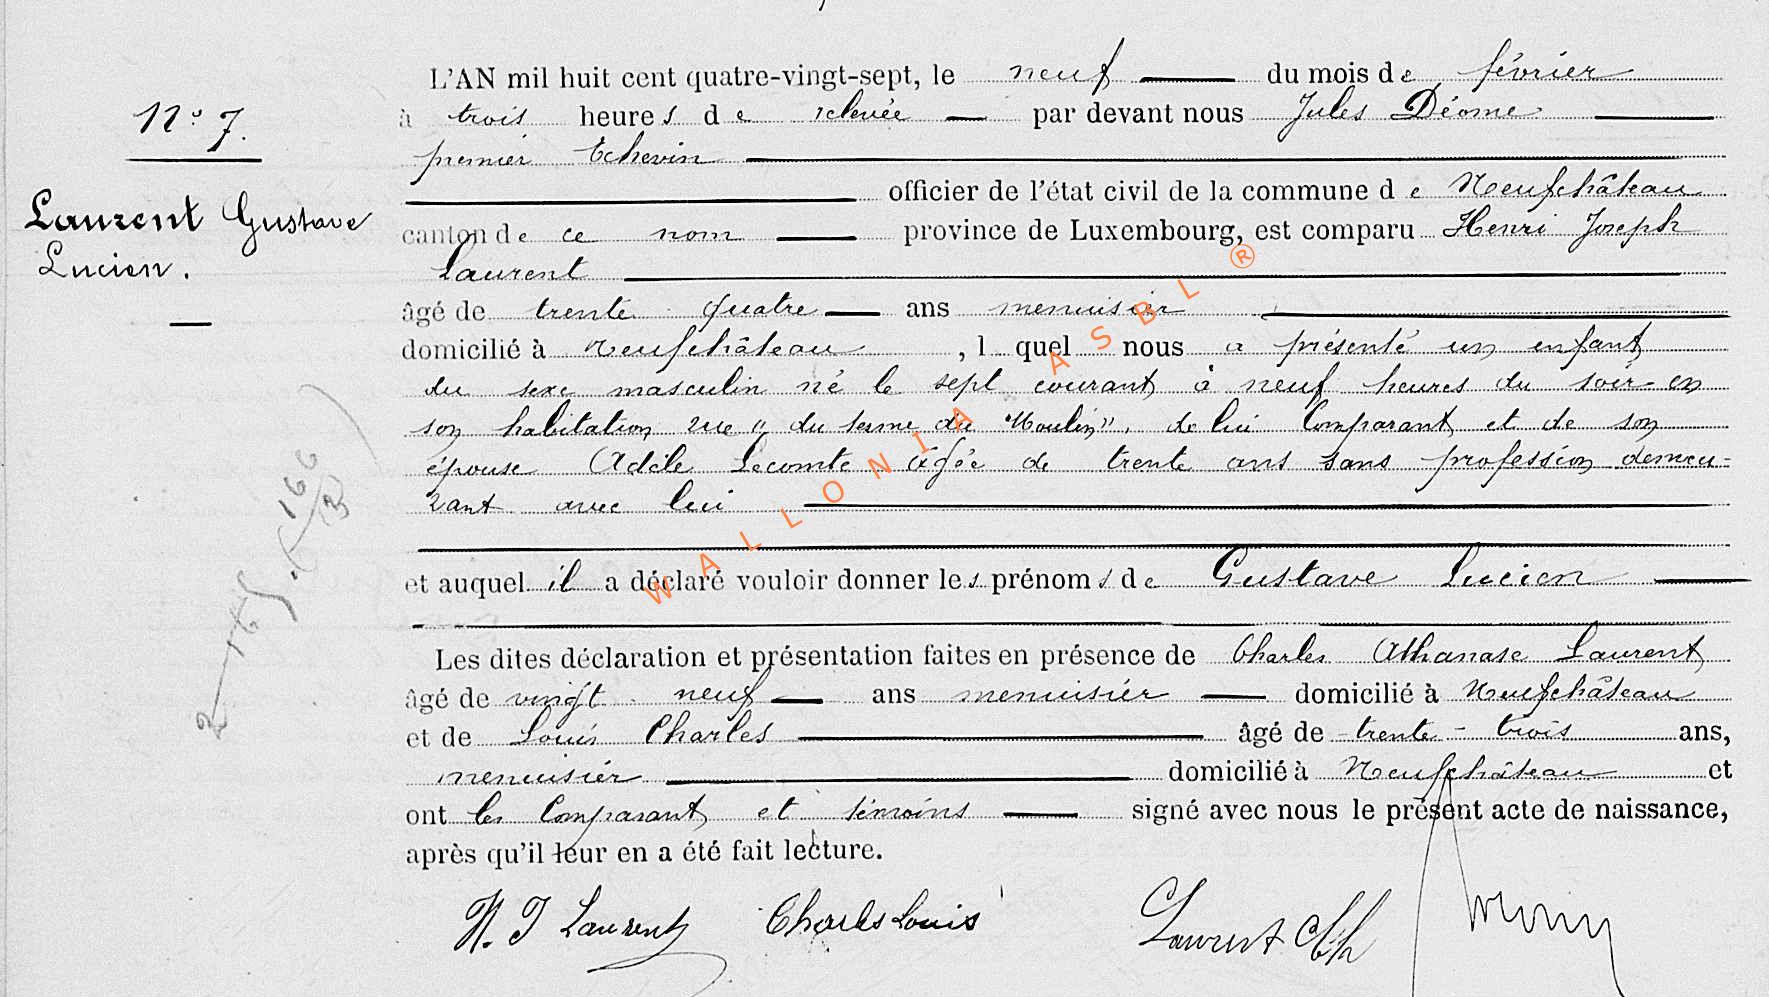 N° 7.
Laurent Gustave
Lucien.
L'AN mil huit cent quatre-vingt-sept, le neuf du mois de février
à trois heures de relevée par devant nous Jules Déome
premier Echevin
officier de l'état civil de la commune de Neufchâteau
canton de ce nom province de Luxembourg, est comparu Henri Joseph
Laurent
âgé de trente quatre ans menuisier
domicilié à Neufchâteau, l quel nous a présenté un enfant
du sexe masculin né le sept courant à neuf heures du soir en
son habitation rue " du terme du Moulin", de lui Comparant et de son
épouse Adèle Lecomte âgée de trente ans sans profession demeu-
rant avec lui
et auquel il a déclaré vouloir donner les prénoms de Gustave Lucien
Les dites déclaration et présentation faites en présence de Charles Athanase Laurent
âgé de vingt neuf ans menuisier domicilié à Neufchâteau
et de Louis Charles âgé de trente-trois ans,
menuisier domicilié à Neufchâteau et
ont les Comparant et témoins signé avec nous le présent acte de naissance,
après qu'il leur en a été fait lecture.
H. J Laurent Charles Louis Laurent Ch
WALLONIA ASBL ®